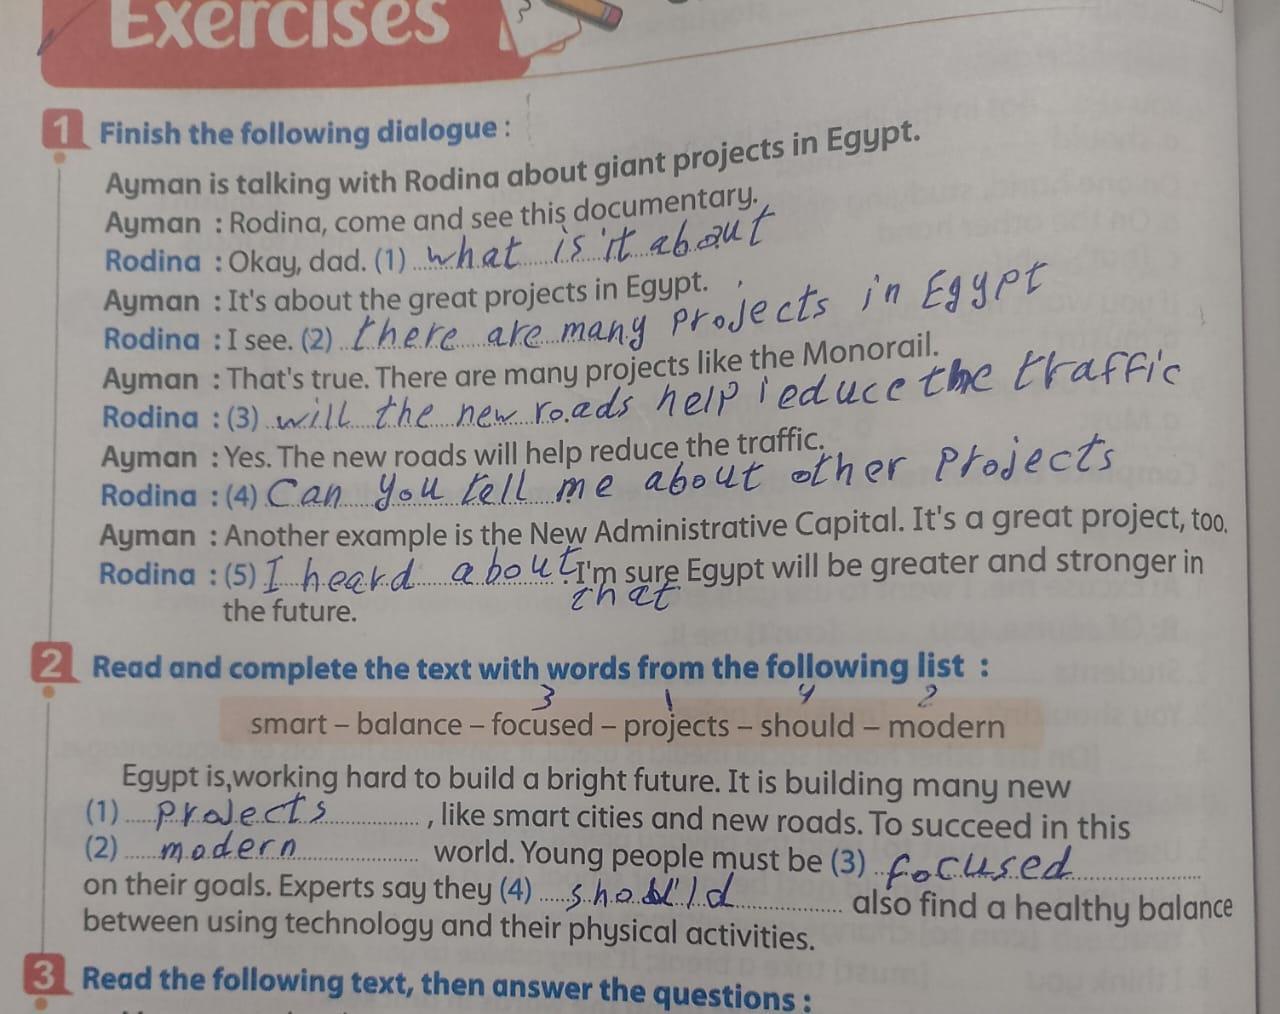 Exercises
1 Finish the following dialogue :
Ayman is talking with Rodina about giant projects in Egypt.
Ayman : Rodina, come and see this documentary.
Rodina : Okay, dad. (1) what is it about
Ayman : It's about the great projects in Egypt.
Rodina : I see. (2) there are many projects in Egypt
Ayman : That's true. There are many projects like the Monorail.
Rodina : (3) will the new roads help reduce the traffic
Ayman : Yes. The new roads will help reduce the traffic.
Rodina : (4) Can you tell me about other projects
Ayman : Another example is the New Administrative Capital. It's a great project, too.
Rodina : (5) I heard about that. I'm sure Egypt will be greater and stronger in
the future.
2 Read and complete the text with words from the following list :
3 1 4 2
smart – balance – focused – projects – should – modern
Egypt is working hard to build a bright future. It is building many new
(1) projects, like smart cities and new roads. To succeed in this
(2) modern world. Young people must be (3) focused
on their goals. Experts say they (4) should also find a healthy balance
between using technology and their physical activities.
3 Read the following text, then answer the questions :